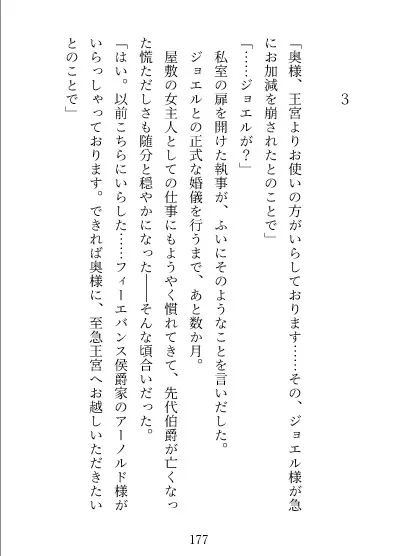 3
「奥様、王宮よりお使いの方がいらしております……その、ジョエル様が急
にお加減を崩されたとのことで」
「……ジョエルが？」
私室の扉を開けた執事が、ふいにそのようなことを言いだした。
ジョエルとの正式な婚儀を行うまで、あと数か月。
屋敷の女主人としての仕事にもようやく慣れてきて、先代伯爵が亡くなっ
た慌ただしさも随分と穏やかになった――そんな頃合いだった。
「はい。以前こちらにいらした……フィーエバンス侯爵家のアーノルド様が
いらっしゃっております。できれば奥様に、至急王宮へお越しいただきたい
とのことで」
177